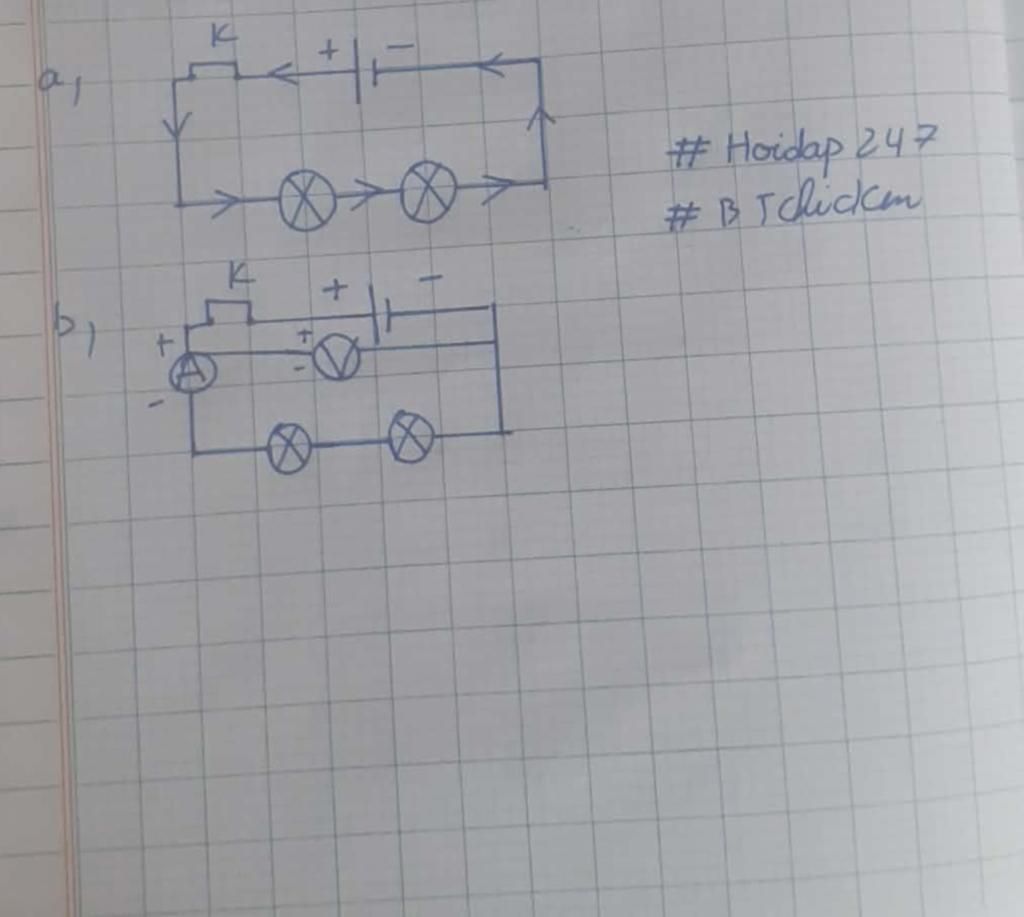 a,
K
+ -
# Hoidap 247
# BTchicken
b,
K
+ -
+ + 
A V
- -